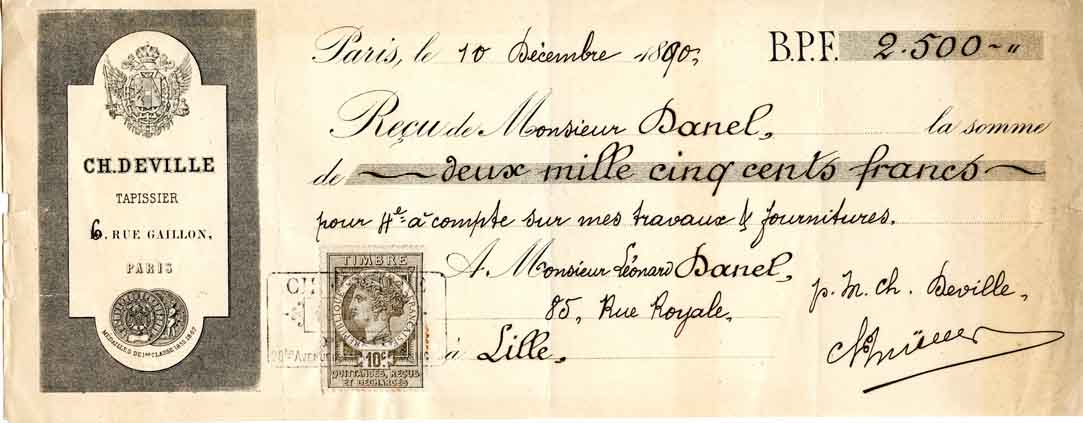 CH. DEVILLE
TAPISSIER
6. RUE GAILLON,
PARIS
MÉDAILLES DE 1ère CLASSE
Paris, le 10 Décembre 1890, B.P.F. 2.500 ~ "
Reçu de Monsieur Danel, la somme
de deux mille cinq cents francs
pour 4e à-compte sur mes travaux & fournitures.
A Monsieur Léonard Danel,
85, Rue Royale,
à Lille,
p. M. Ch. Deville,
TIMBRE
RÉPUBLIQUE FRANÇAISE
10c
QUITTANCES, REÇUS
ET DÉCHARGES